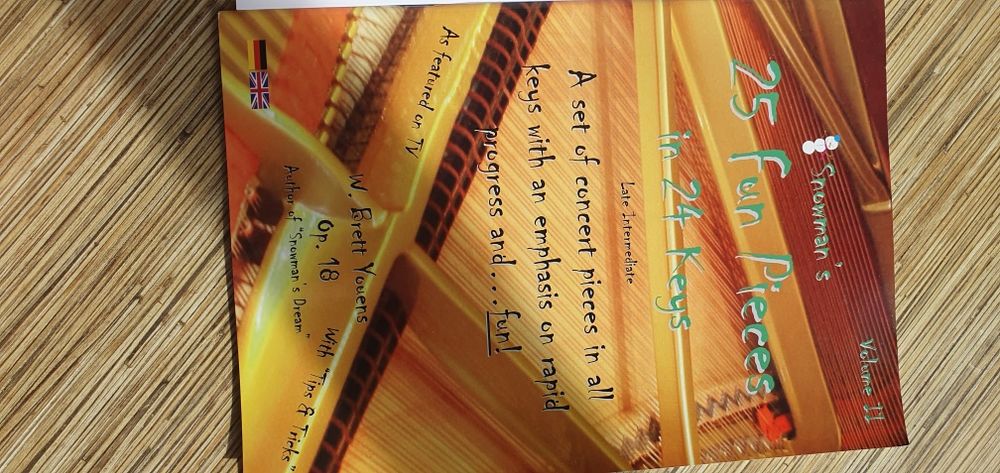 Volume II
Snowman's
25 Fun Pieces
in 24 Keys
Late Intermediate
A set of concert pieces in all
keys with an emphasis on rapid
progress and...fun!
As featured on TV
W. Brett Youens
Op. 18
With "Tips & Tricks"
Author of "Snowman's Dream"